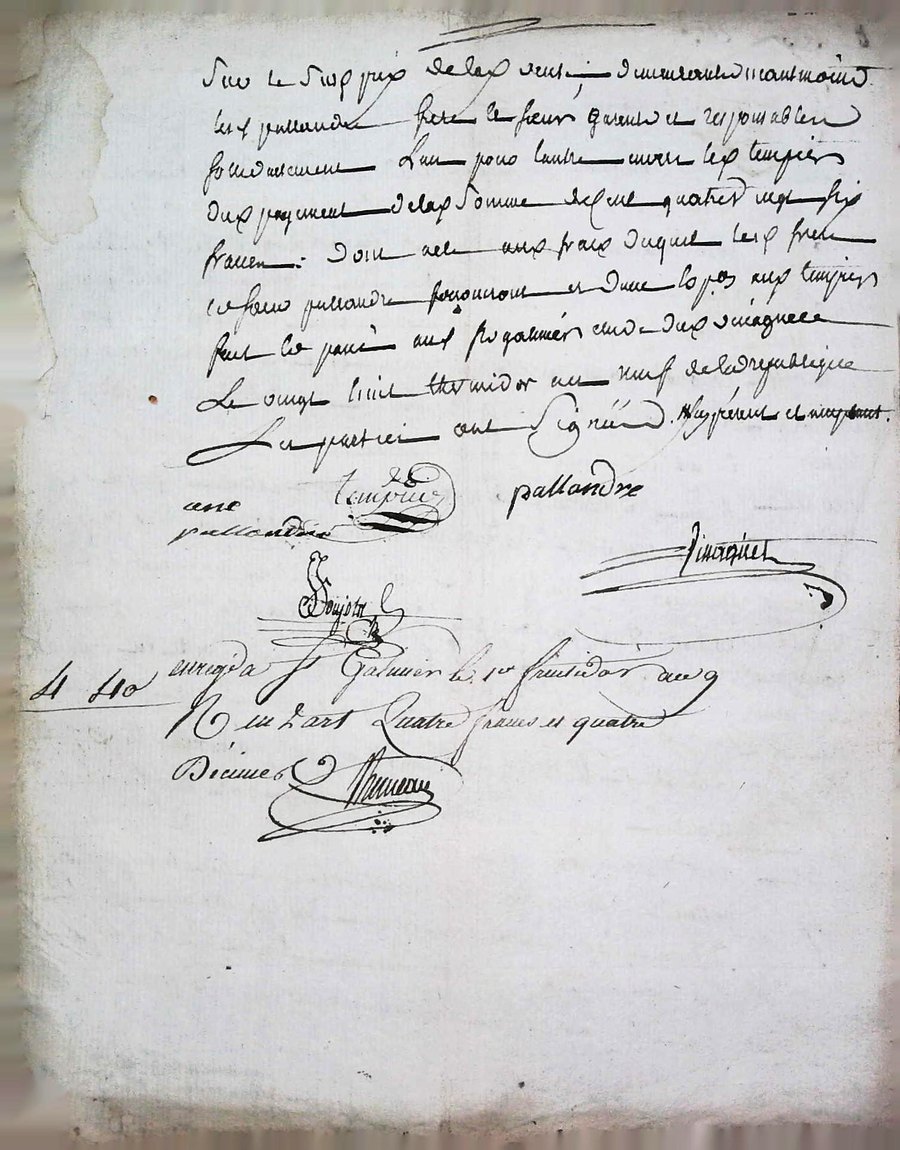 sur le susd prix de lad vente demeurant neantmoins
lesd pallandre frere et soeur garents et responsables
solidairement l'un pour l'autre envers led tempier
dud payement de lad somme de cent quatre vingt six
francs. dont acte aux frais duquel lesd frere
et soeur pallandre fourniront et d'une copie aud tempier
fait le passé aud St galmier etude dud vinagnet
Le vingt huit thermidor an neuf de la republique
Les parties ont signé
ane tempier pallandre
pallandre
Pinaquet
Soujotn
4 40 enregé a St Galmier le 1er fructidor an 9
R en 2 art Quatre francs et quatre
Décimes